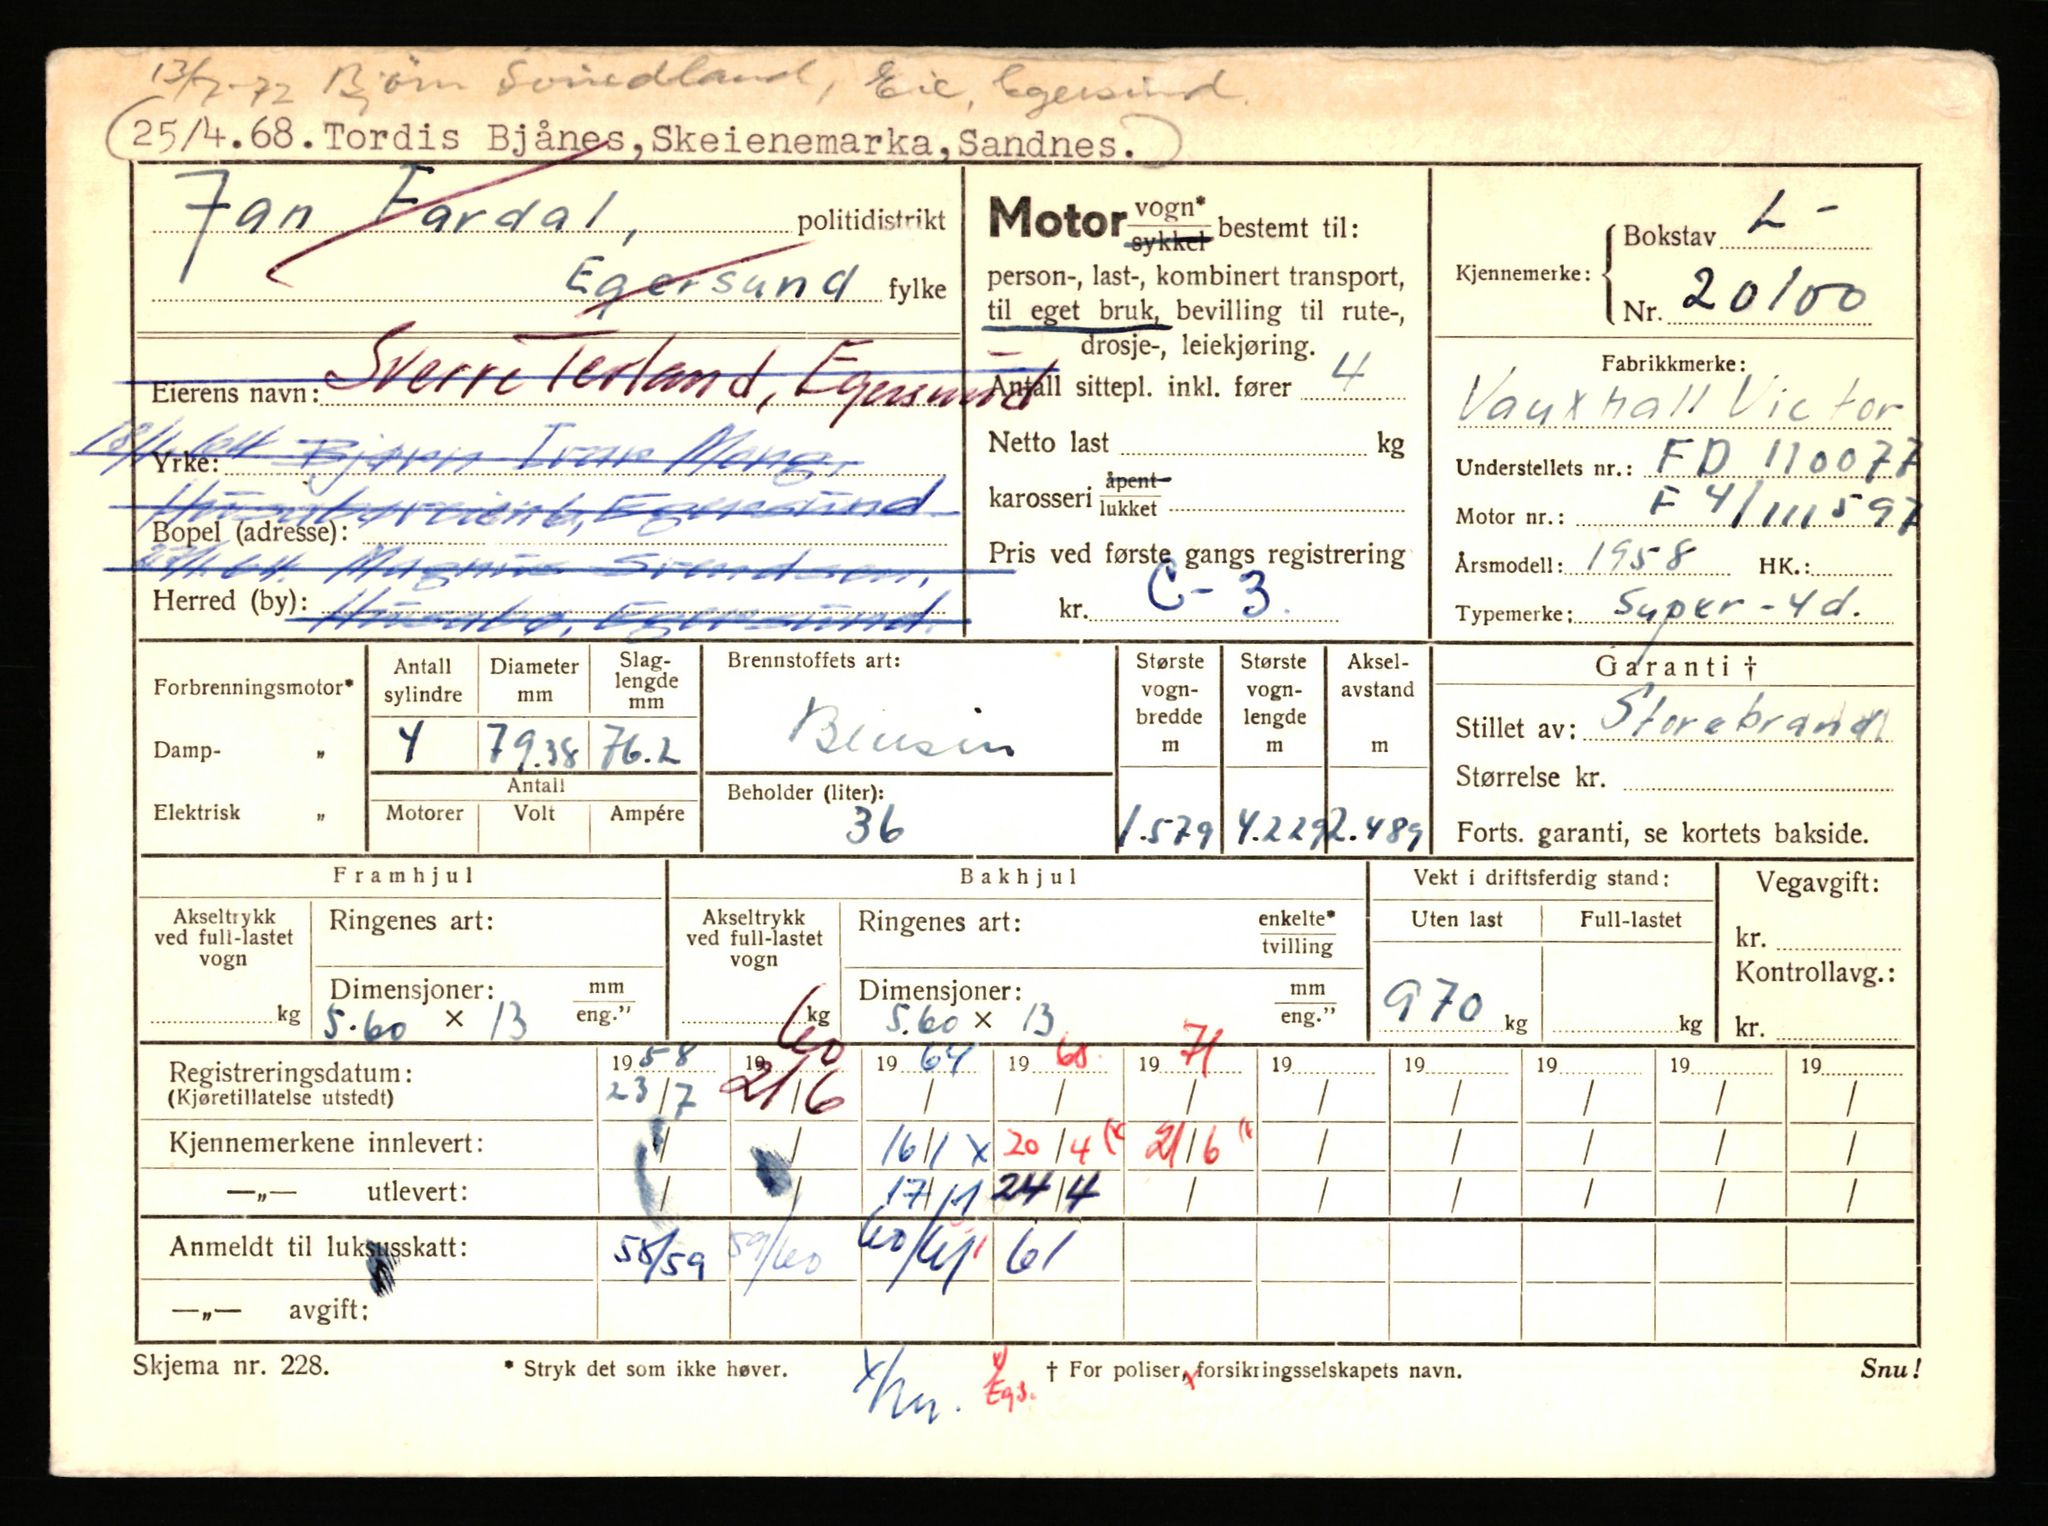 13/7-72 Bjørn Svindland, Eie, Egersund.
(25/4.68. Tordis Bjånes, Skeienemarka, Sandnes.)
Jan Fardal, politidistrikt
Egersund fylke
Eierens navn: Sverre Terland, Egersund
18/1.64 Bjørn Ivar Mong,
Yrke:
Egersund
Bopel (adresse):
Magnus Svendsen,
Herred (by): Husabø, Egersund.
Motor vogn*/sykkel bestemt til:
person-, last-, kombinert transport,
til eget bruk, bevilling til rute-,
drosje-, leiekjøring.
Antall sittepl. inkl. fører 4
Netto last kg
karosseri åpent/lukket
Pris ved første gangs registrering
kr. C-3.
Kjennemerke: Bokstav L-
Nr. 20100
Fabrikkmerke:
Vauxhall Victor
Understellets nr.: FD 110077
Motor nr.: F4/111597
Årsmodell: 1958 HK.:
Typemerke: Super-4d.
Forbrenningsmotor*
Damp- „
Elektrisk „
Antall sylindre 4
Diameter mm 79.38
Slaglengde mm 76.2
Antall
Motorer Volt Ampére
Brennstoffets art:
Bensin
Beholder (liter):
36
Største vognbredde m 1.579
Største vognlengde m 4.229
Akselavstand m 2.489
Garanti †
Stillet av: Storebrand
Størrelse kr.
Forts. garanti, se kortets bakside.
Framhjul
Akseltrykk ved full-lastet vogn kg
Ringenes art:
Dimensjoner: mm/eng."
5.60 × 13
Bakhjul
Akseltrykk ved full-lastet vogn kg
Ringenes art: enkelte*/tvilling
Dimensjoner: mm/eng."
5.60 × 13
Vekt i driftsferdig stand:
Uten last Full-lastet
970 kg kg
Vegavgift:
kr.
Kontrollavg.:
kr.
Registreringsdatum: 1958 1960 1964 1968 1971 19 19 19 19 19
(Kjøretillatelse utstedt) 23/7 21/6 / / / / / / / /
Kjennemerkene innlevert: / / 16/1 x 20/4 (x 21/6 (x / / / / /
—„— utlevert: / / 17/1 24/4 / / / / / /
Anmeldt til luksusskatt: 58/59 59/60 60/61 61
—„— avgift:
Skjema nr. 228. * Stryk det som ikke høver. † For poliser, forsikringsselskapets navn. Snu!
x/ x/Egs.